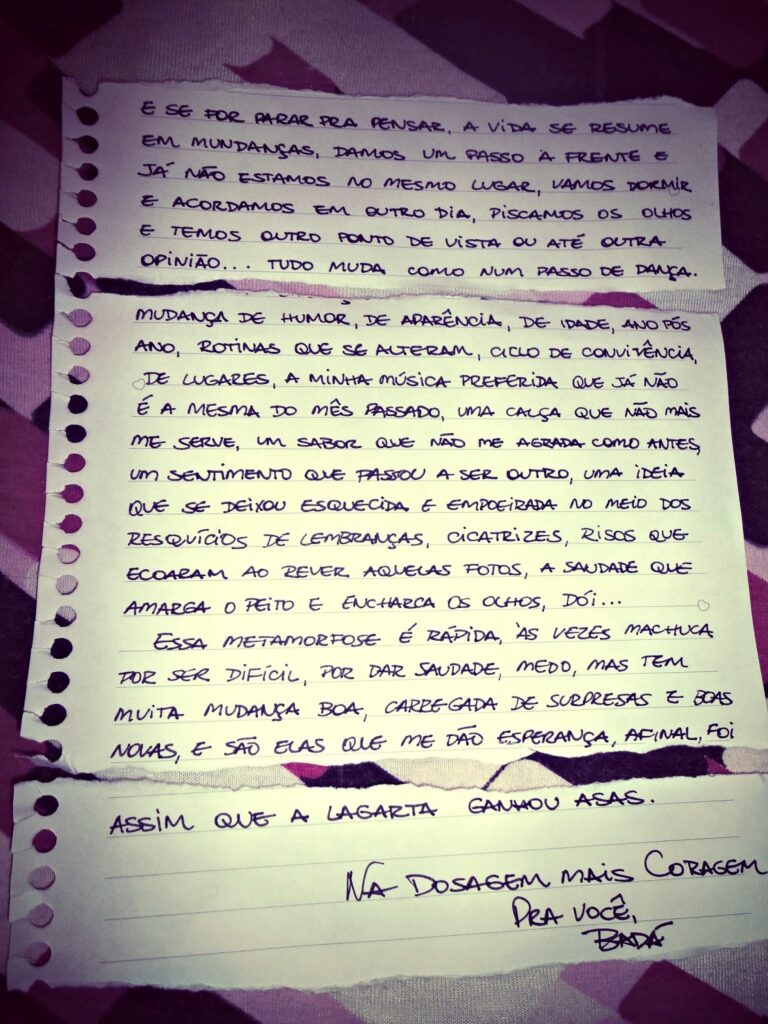 E SE FOR PARAR PRA PENSAR, A VIDA SE RESUME
EM MUNDANÇAS, DAMOS UM PASSO À FRENTE E
JÁ NÃO ESTAMOS NO MESMO LUGAR, VAMOS DORMIR
E ACORDAMOS EM OUTRO DIA, PISCAMOS OS OLHOS
E TEMOS OUTRO PONTO DE VISTA OU ATÉ OUTRA
OPINIÃO... TUDO MUDA COMO NUM PASSO DE DANÇA.
MUDANÇA DE HUMOR, DE APARÊNCIA, DE IDADE, ANO PÓS
ANO, ROTINAS QUE SE ALTERAM, CICLO DE CONVIVÊNCIA,
DE LUGARES, A MINHA MÚSICA PREFERIDA QUE JÁ NÃO
É A MESMA DO MÊS PASSADO, UMA CALÇA QUE NÃO MAIS
ME SERVE, UM SABOR QUE NÃO ME AGRADA COMO ANTES,
UM SENTIMENTO QUE PASSOU A SER OUTRO, UMA IDEIA
QUE SE DEIXOU ESQUECIDA E EMPOEIRADA NO MEIO DOS
RESQUÍCIOS DE LEMBRANÇAS, CICATRIZES, RISOS QUE
ECOARAM AO REVER AQUELAS FOTOS, A SAUDADE QUE
AMARGA O PEITO E ENCHARCA OS OLHOS, DÓI...
ESSA METAMORFOSE É RÁPIDA, ÀS VEZES MACHUCA
POR SER DIFÍCIL, POR DAR SAUDADE, MEDO, MAS TEM
MUITA MUDANÇA BOA, CARREGADA DE SURPRESAS E BOAS
NOVAS, E SÃO ELAS QUE ME DÃO ESPERANÇA, AFINAL, FOI
ASSIM QUE A LAGARTA GANHOU ASAS.
NA DOSAGEM MAIS CORAGEM
PRA VOCÊ,
BADÁ